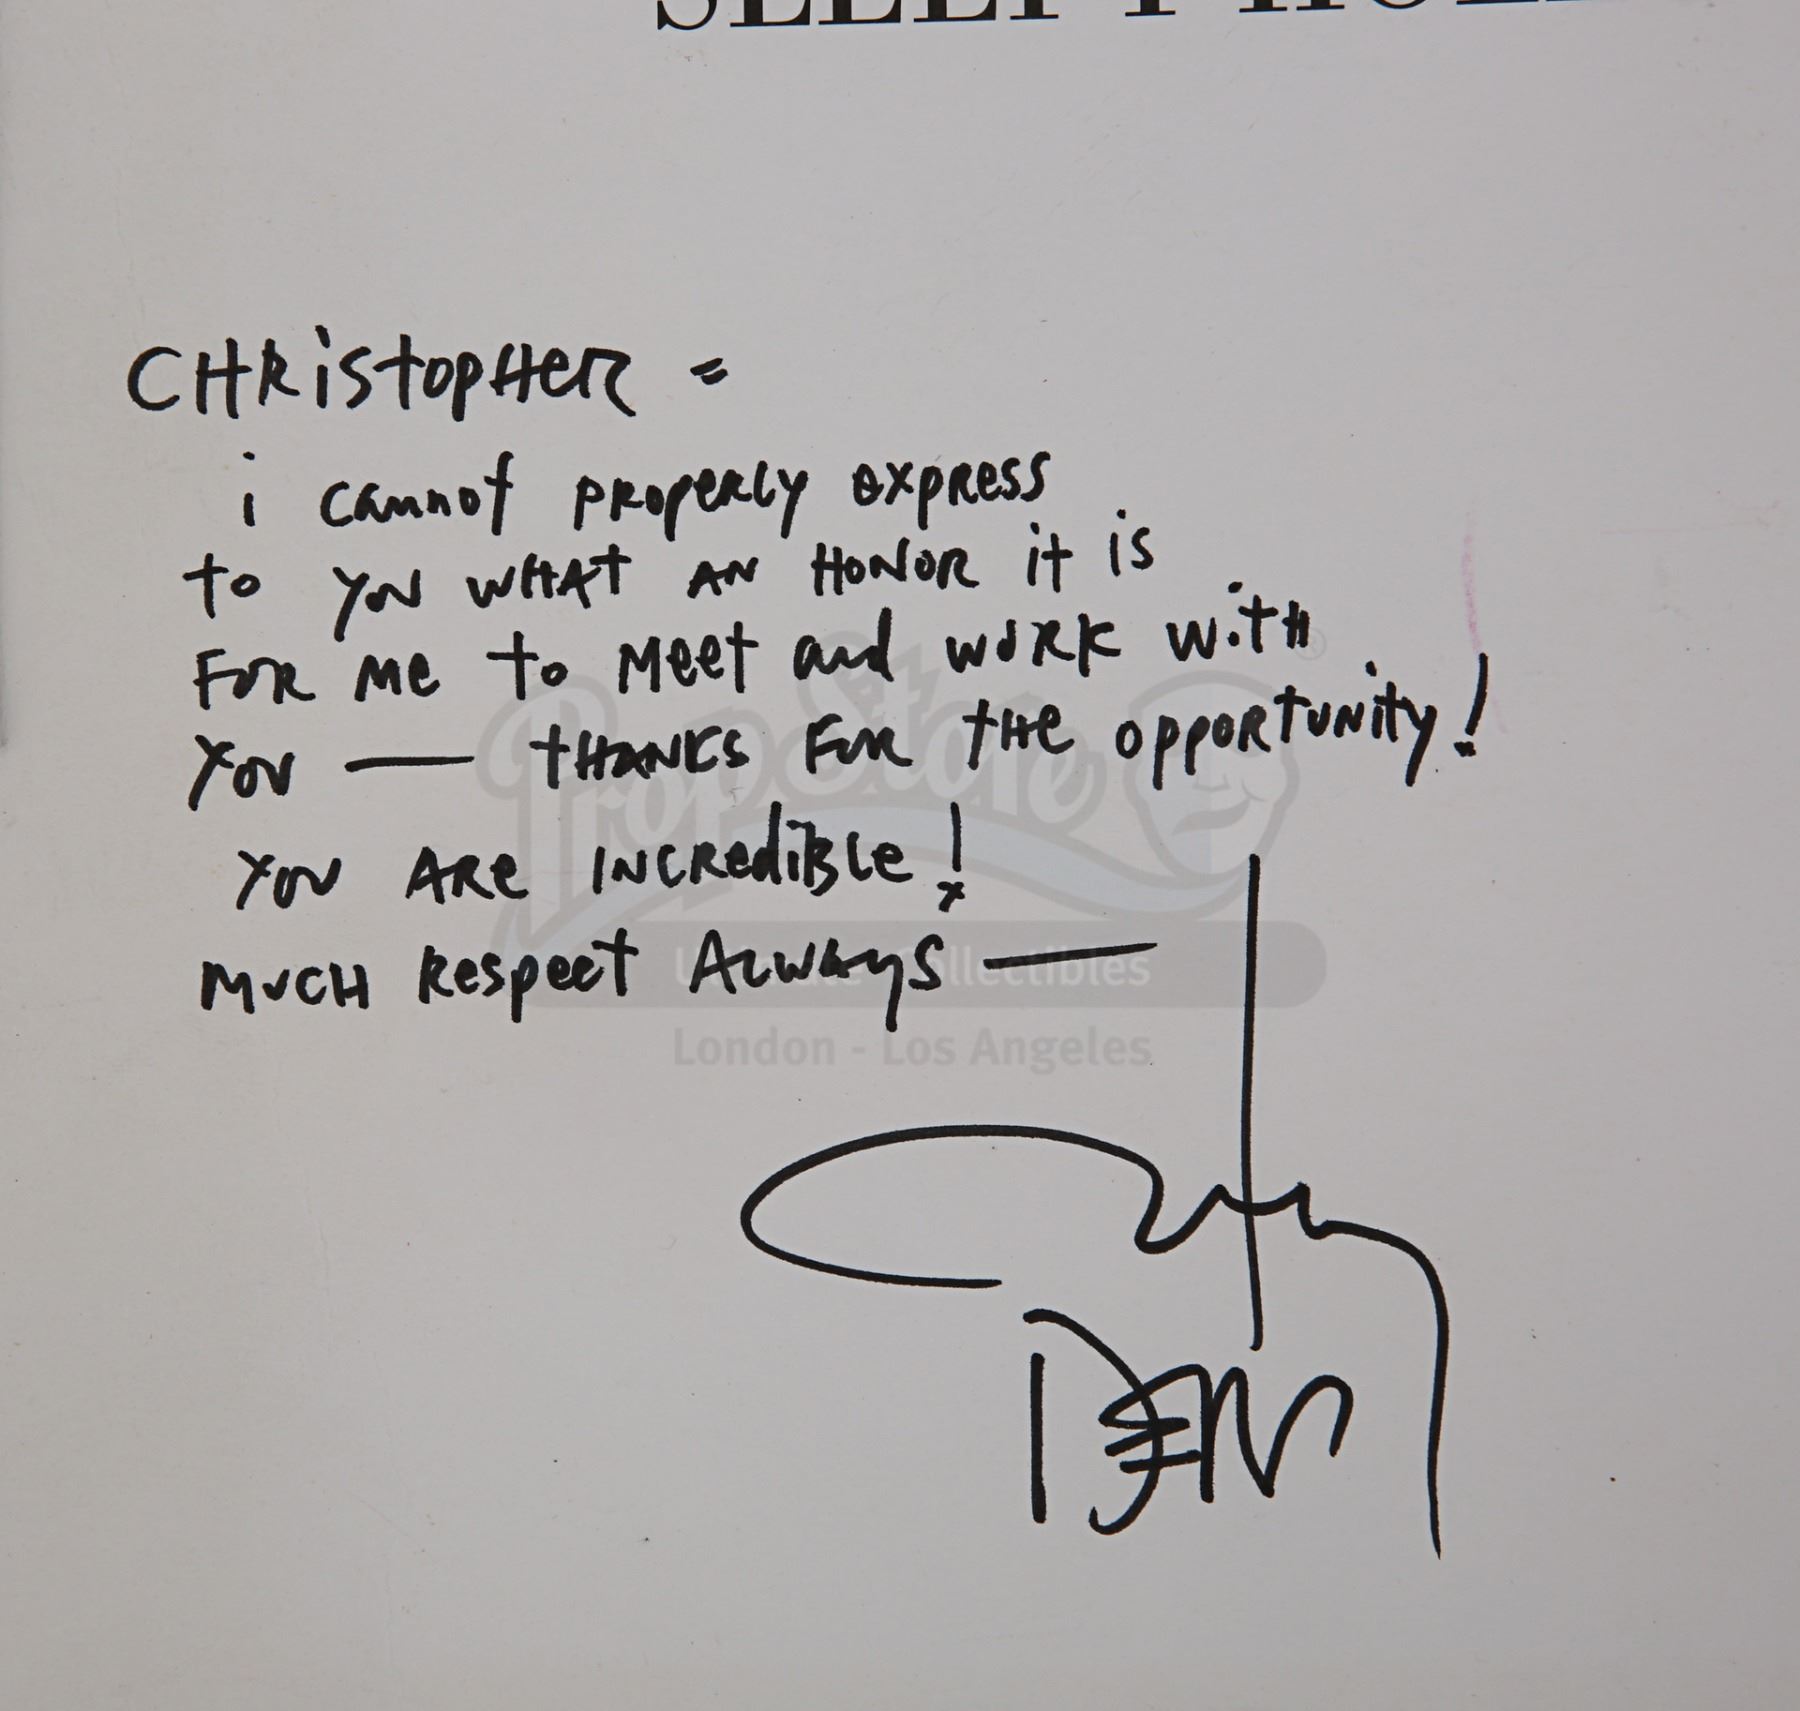 CHRistopHeR =
i cannot pRopeRLy express
to you wHAt AN HoNoR it is
FoR Me to Meet and woRk witH
you — tHANKS FoR tHe oppoRtuNity!
you ARe INCRediBLe!
MucH Respect ALwAyS —
PropStore
Ultimate Collectibles
London - Los Angeles